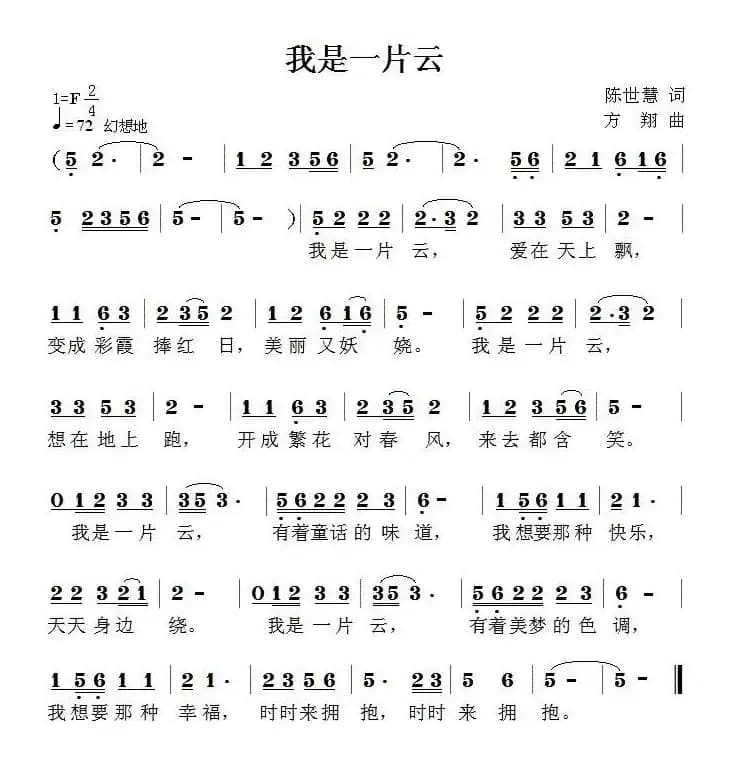 我是一片云
1=F 2/4
陈世慧 词
♩=72 幻想地
方 翔 曲
( 5 2· | 2 - | 1 2 3 5 6 | 5 2· | 2· 5 6 | 2 1 6 1 6 |
5 2 3 5 6 | 5 - | 5 - ) | 5 2 2 2 | 2·3 2 | 3 3 5 3 | 2 - |
我是一片 云， 爱在天上 飘，
1 1 6 3 | 2 3 5 2 | 1 2 6 1 6 | 5 - | 5 2 2 2 | 2·3 2 |
变成彩霞 捧红 日，美丽又妖 娆。 我是一片 云，
3 3 5 3 | 2 - | 1 1 6 3 | 2 3 5 2 | 1 2 3 5 6 | 5 - |
想在地上 跑， 开成繁花 对春 风，来去都含 笑。
0 1 2 3 3 | 3 5 3· | 5 6 2 2 2 3 | 6 - | 1 5 6 1 1 | 2 1· |
我是一片 云， 有着童话的味 道， 我想要那种 快乐，
2 2 3 2 1 | 2 - | 0 1 2 3 3 | 3 5 3· | 5 6 2 2 2 3 | 6 - |
天天身边 绕。 我是一片 云， 有着美梦的色 调，
1 5 6 1 1 | 2 1· | 2 3 5 6 | 5· 2 3 | 5 6 | 5 - | 5 - ‖
我想要那种 幸福， 时时来拥 抱，时时 来 拥 抱。